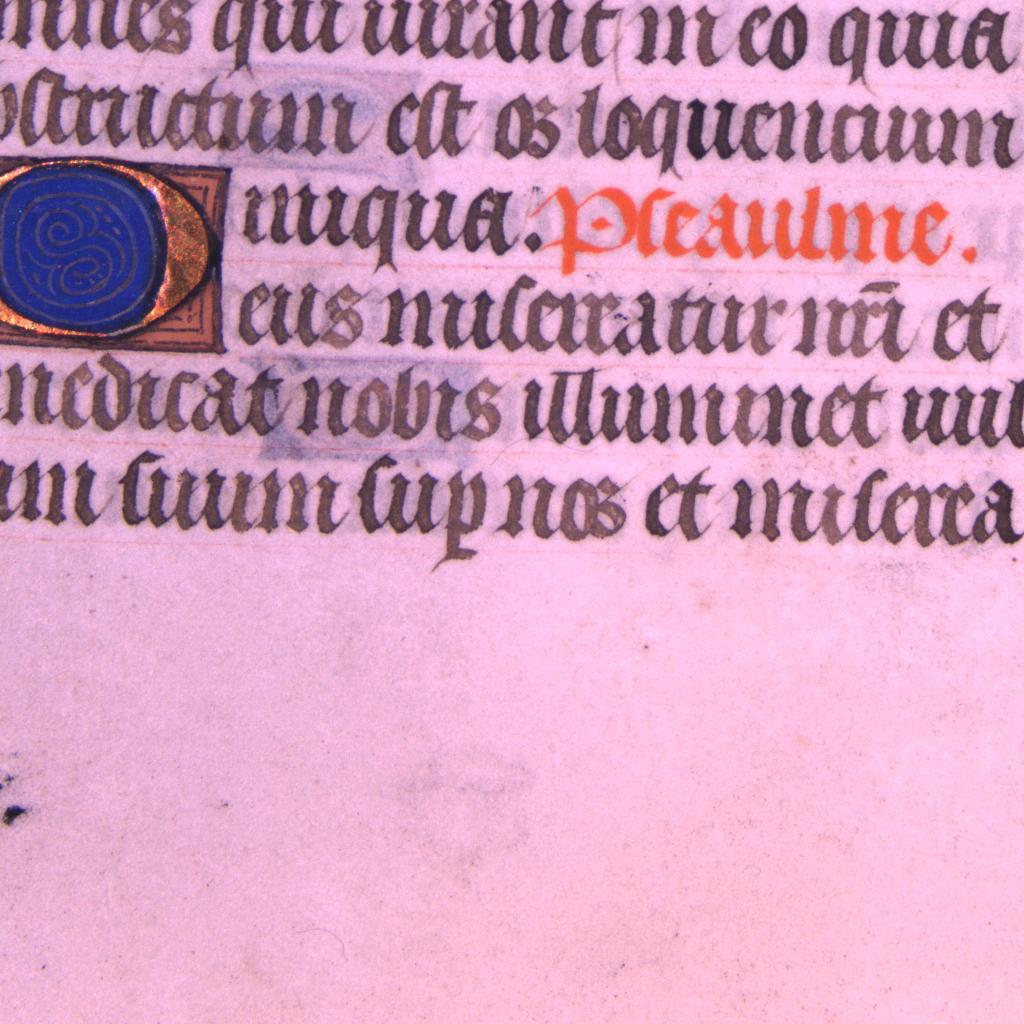 mnes qui iurant in eo quia
bstructum est os loquencium
iniqua. Pseaulme.
Deus misereatur nr̄i et
nedicat nobis illuminet uul
um suum suꝑ nos et miserea